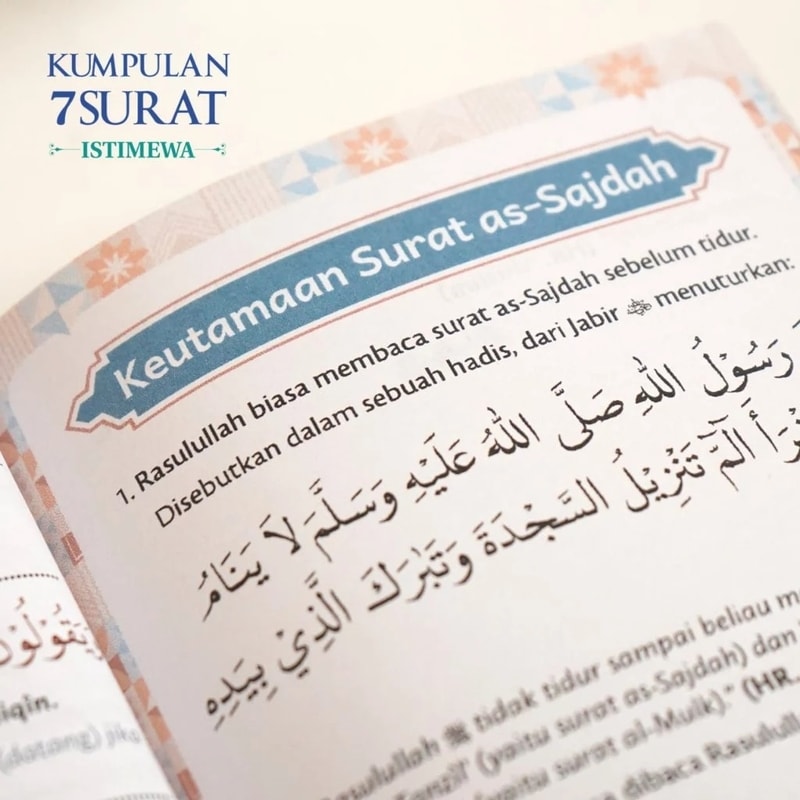 KUMPULAN
7SURAT
ISTIMEWA
Keutamaan Surat as-Sajdah
1. Rasulullah biasa membaca surat as-Sajdah sebelum tidur.
Disebutkan dalam sebuah hadis, dari Jabir menuturkan:
رَسُوْلُ اللّٰهِ صَلَّى اللّٰهُ عَلَيْهِ وَسَلَّمَ لَا يَنَامُ
الٓمّٓ تَنْزِيْلُ السَّجْدَةَ وَتَبٰرَكَ الَّذِيْ بِيَدِهِ
Rasulullah ﷺ tidak tidur sampai beliau
Tanzil' (yaitu surat as-Sajdah) dan
(yaitu surat al-Mulk)." (HR.
dibaca
يَقُوْلُوْنَ
iqin.
(datang) jika